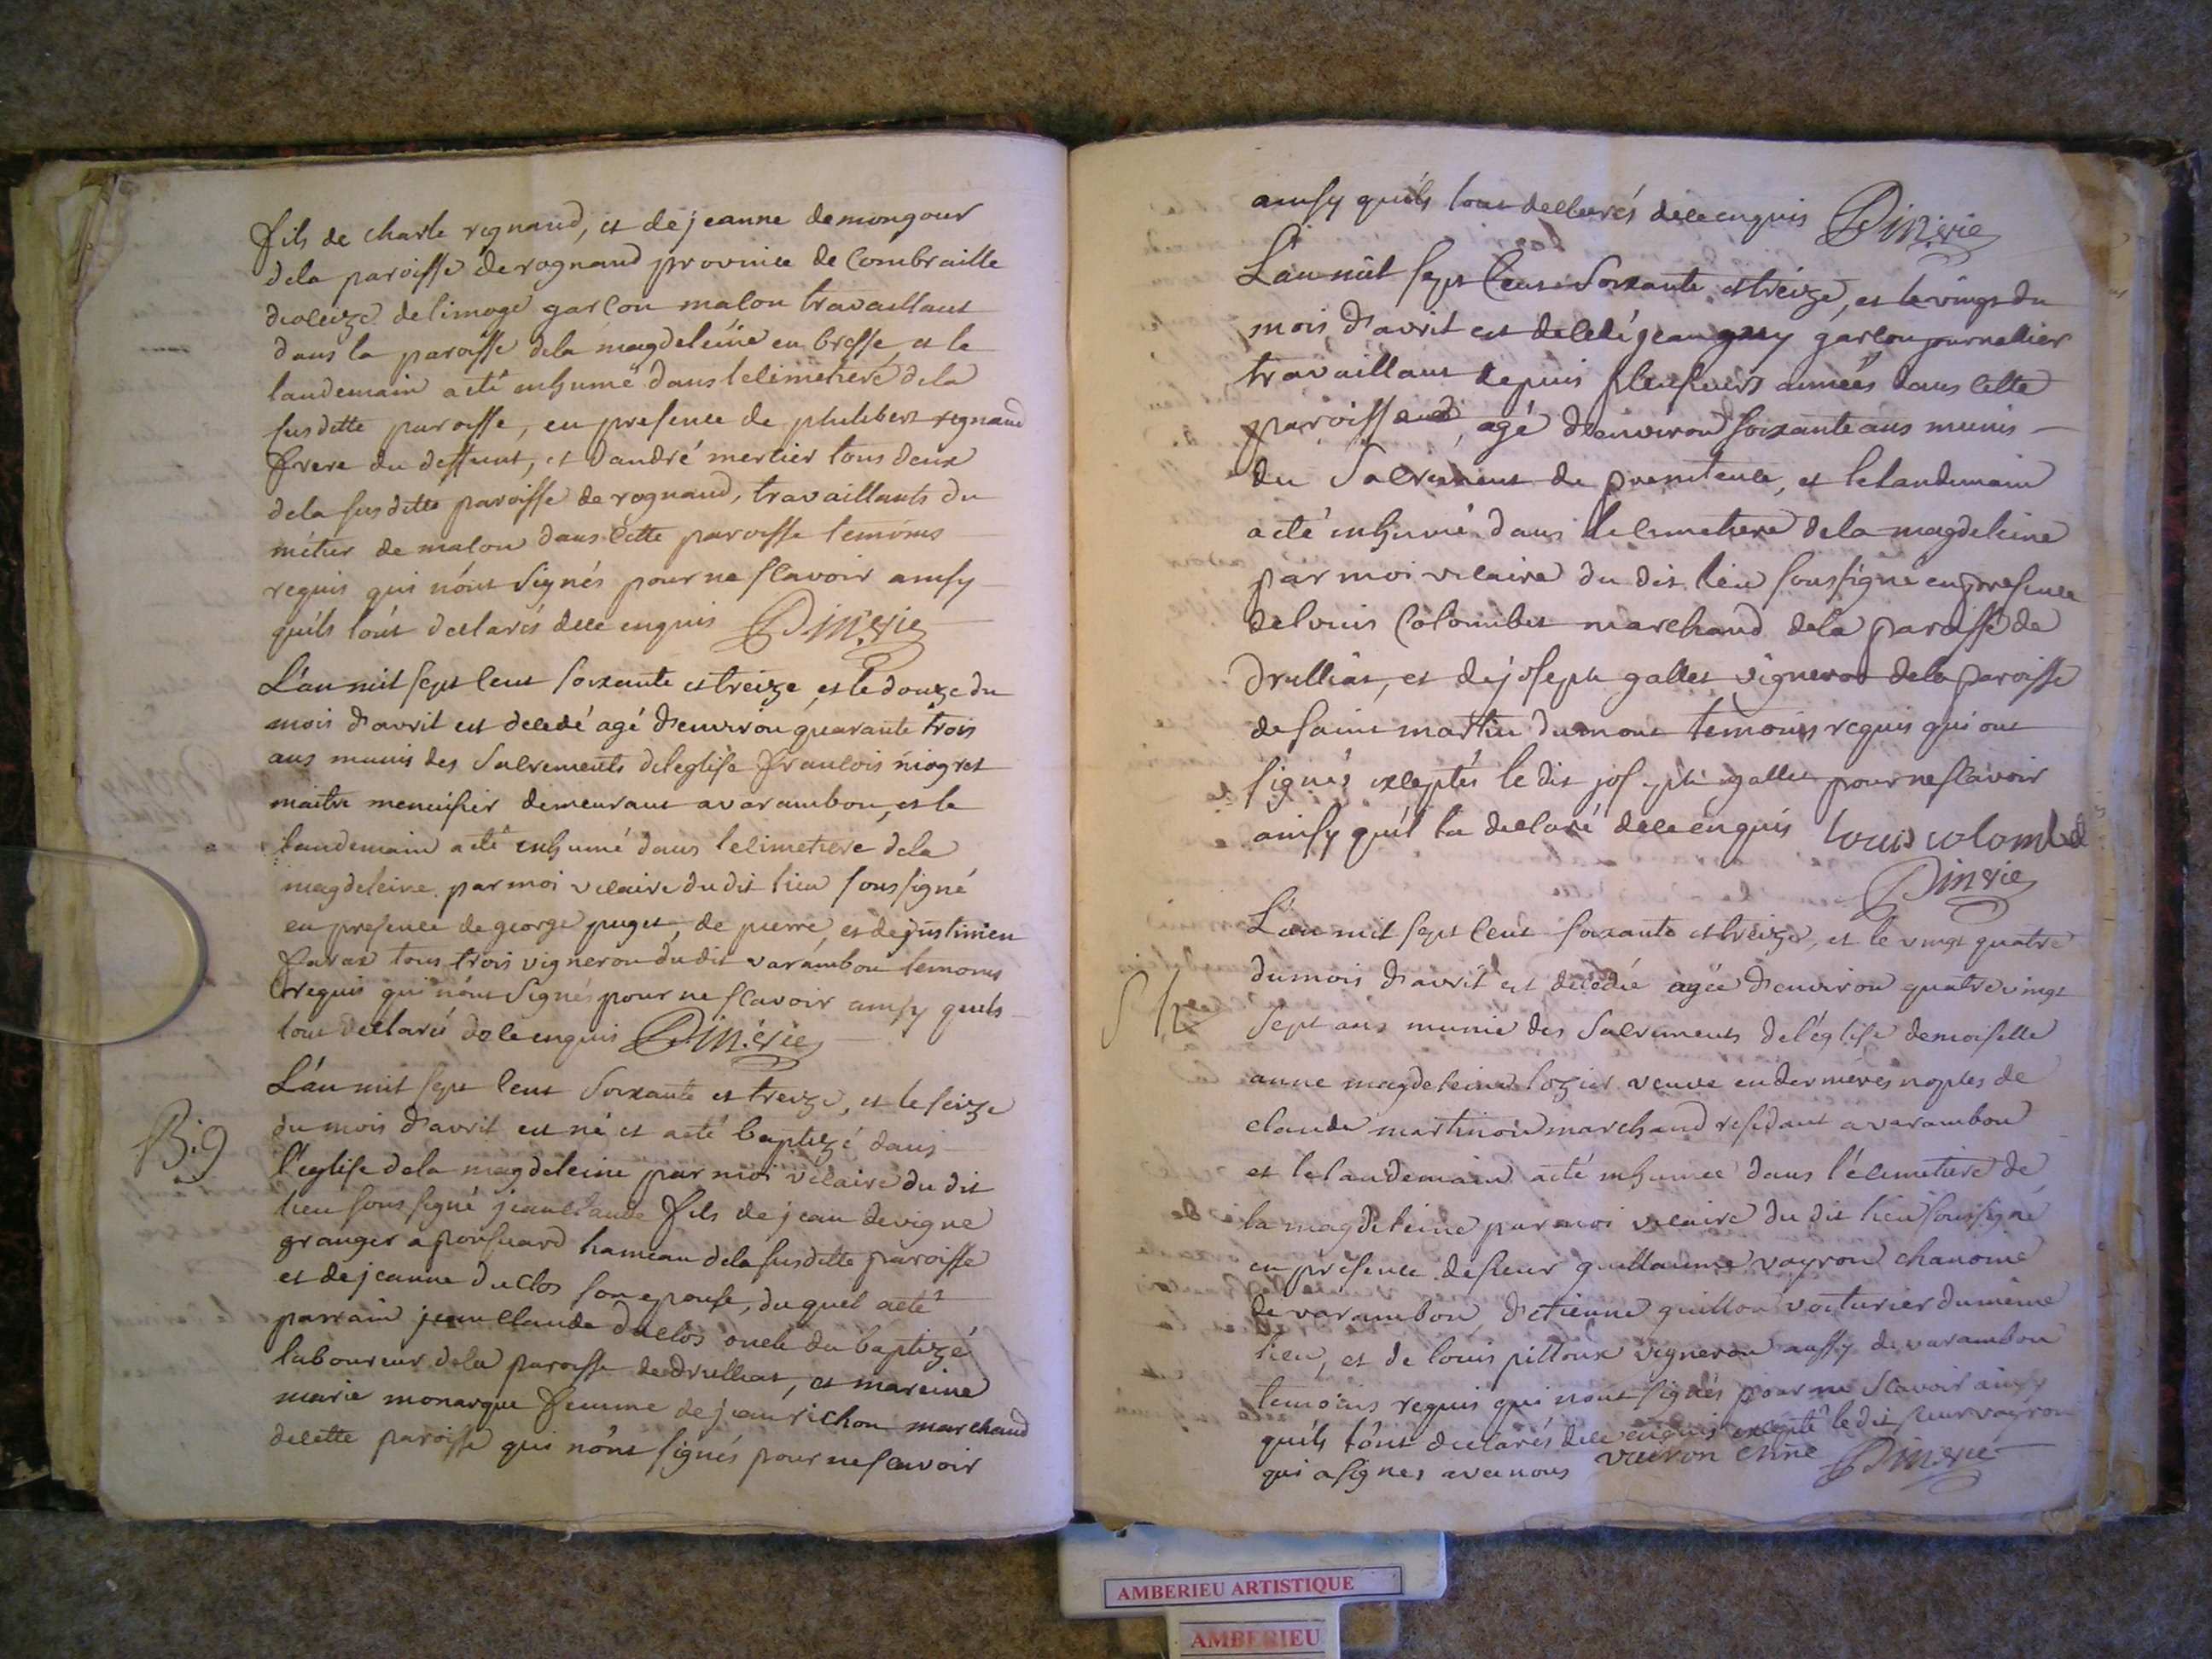 fils de charle regnaud, et de jeanne demongour
dela paroisse de rognaud province de Combraille
dioleize de limoge garcon malon travaillant
dans la paroisse dela magdeleine en bresse, et le
landemain a eté inhumé dans le cimetiere dela
susditte paroisse, en presence de philibert regnaud
frere du deffunt, et d'andré mercier tous deux
dela susditte paroisse de rognaud, travaillants du
métier de malon dans cette paroisse temoins
requis qui n'ont signés pour ne scavoir ainsy
qu'ils l'ont declarés de ce enquis Dinerie
L'an mil sept cent soixante et treize, et le douze du
mois d'avril est decedé agé d'environ quarante trois
ans munis des sacrements de leglise francois niogret
maitre menuisier demeurant a varambon, et le
landemain a eté inhumé dans le cimetiere dela
magdeleine par moi vicaire du dit lieu soussigné
en presence de george puget, de pierre, et de justinien
farax tous trois vigneron du dit varambon temoins
requis qui n'ont signés pour ne scavoir ainsy qu'els
l'ont declarés de ce enquis Dinerie
L'an mil sept cent soixante et treize, et le seize
B.g du mois d'avril est né et a eté baptizé dans
l'eglise dela magdeleine par moi vicaire du dit
lieu soussigné jean claude fils de jean devigne
granger a ponsuard hameau dela susditte paroisse
et de jeanne duclos son epouse, du quel a eté
parrain jean claude duclos oncle du baptizé
laboureur dela paroisse de drulliat, et mareine
marie monarque femme de jean richon marchand
de cette paroisse qui n'ont signés pour ne scavoir
ainsy qu'ils l'ont declarés de ce enquis Dinerie
L'an mil sept cent soixante et treize, et le vingt du
mois d'avril est decedé jean guy garcon journallier
travaillant depuis plusieurs années dans cette
paroisse, agé d'environ soixante ans munis
du sacrement de penitence, et le landemain
a eté inhumé dans le cimetiere dela magdeleine
par moi vicaire du dit lieu soussigné en presence
de louis Colombet marchand dela paroisse de
Drulliat, et de joseph gallet vigneron dela paroisse
de saint martin du mont temoins requis qui ont
signés exceptés le dit joseph gallet pour ne scavoir
ainsy qu'il l'a declaré de ce enquis louis colombet
Dinerie
L'an mil sept cent soixante et treize, et le vingt quatre
du mois d'avril est decedée agée d'environ quatre vingt
sept ans munie des sacrements de l'église demoiselle
anne magdeleine lozier veuve en dernieres noples de
claude martinon marchand residant a varambon
et le landemain a eté inhumée dans le cimetiere de
la magdeleine par moi vicaire du dit lieu soussigné
en présence de sieur guillaume vayron chanoine
de varambon, d'etienne guillon voiturier du même
lieu, et de louis pittoux vigneron aussy de varambon
temoins requis qui n'ont signés pour ne scavoir ainsy
qu'ils l'ont declarés de ce enquis excepté le dit sieur vayron
qui a signés avec nous vairon chne Dinerie
AMBERIEU ARTISTIQUE
AMBERIEU